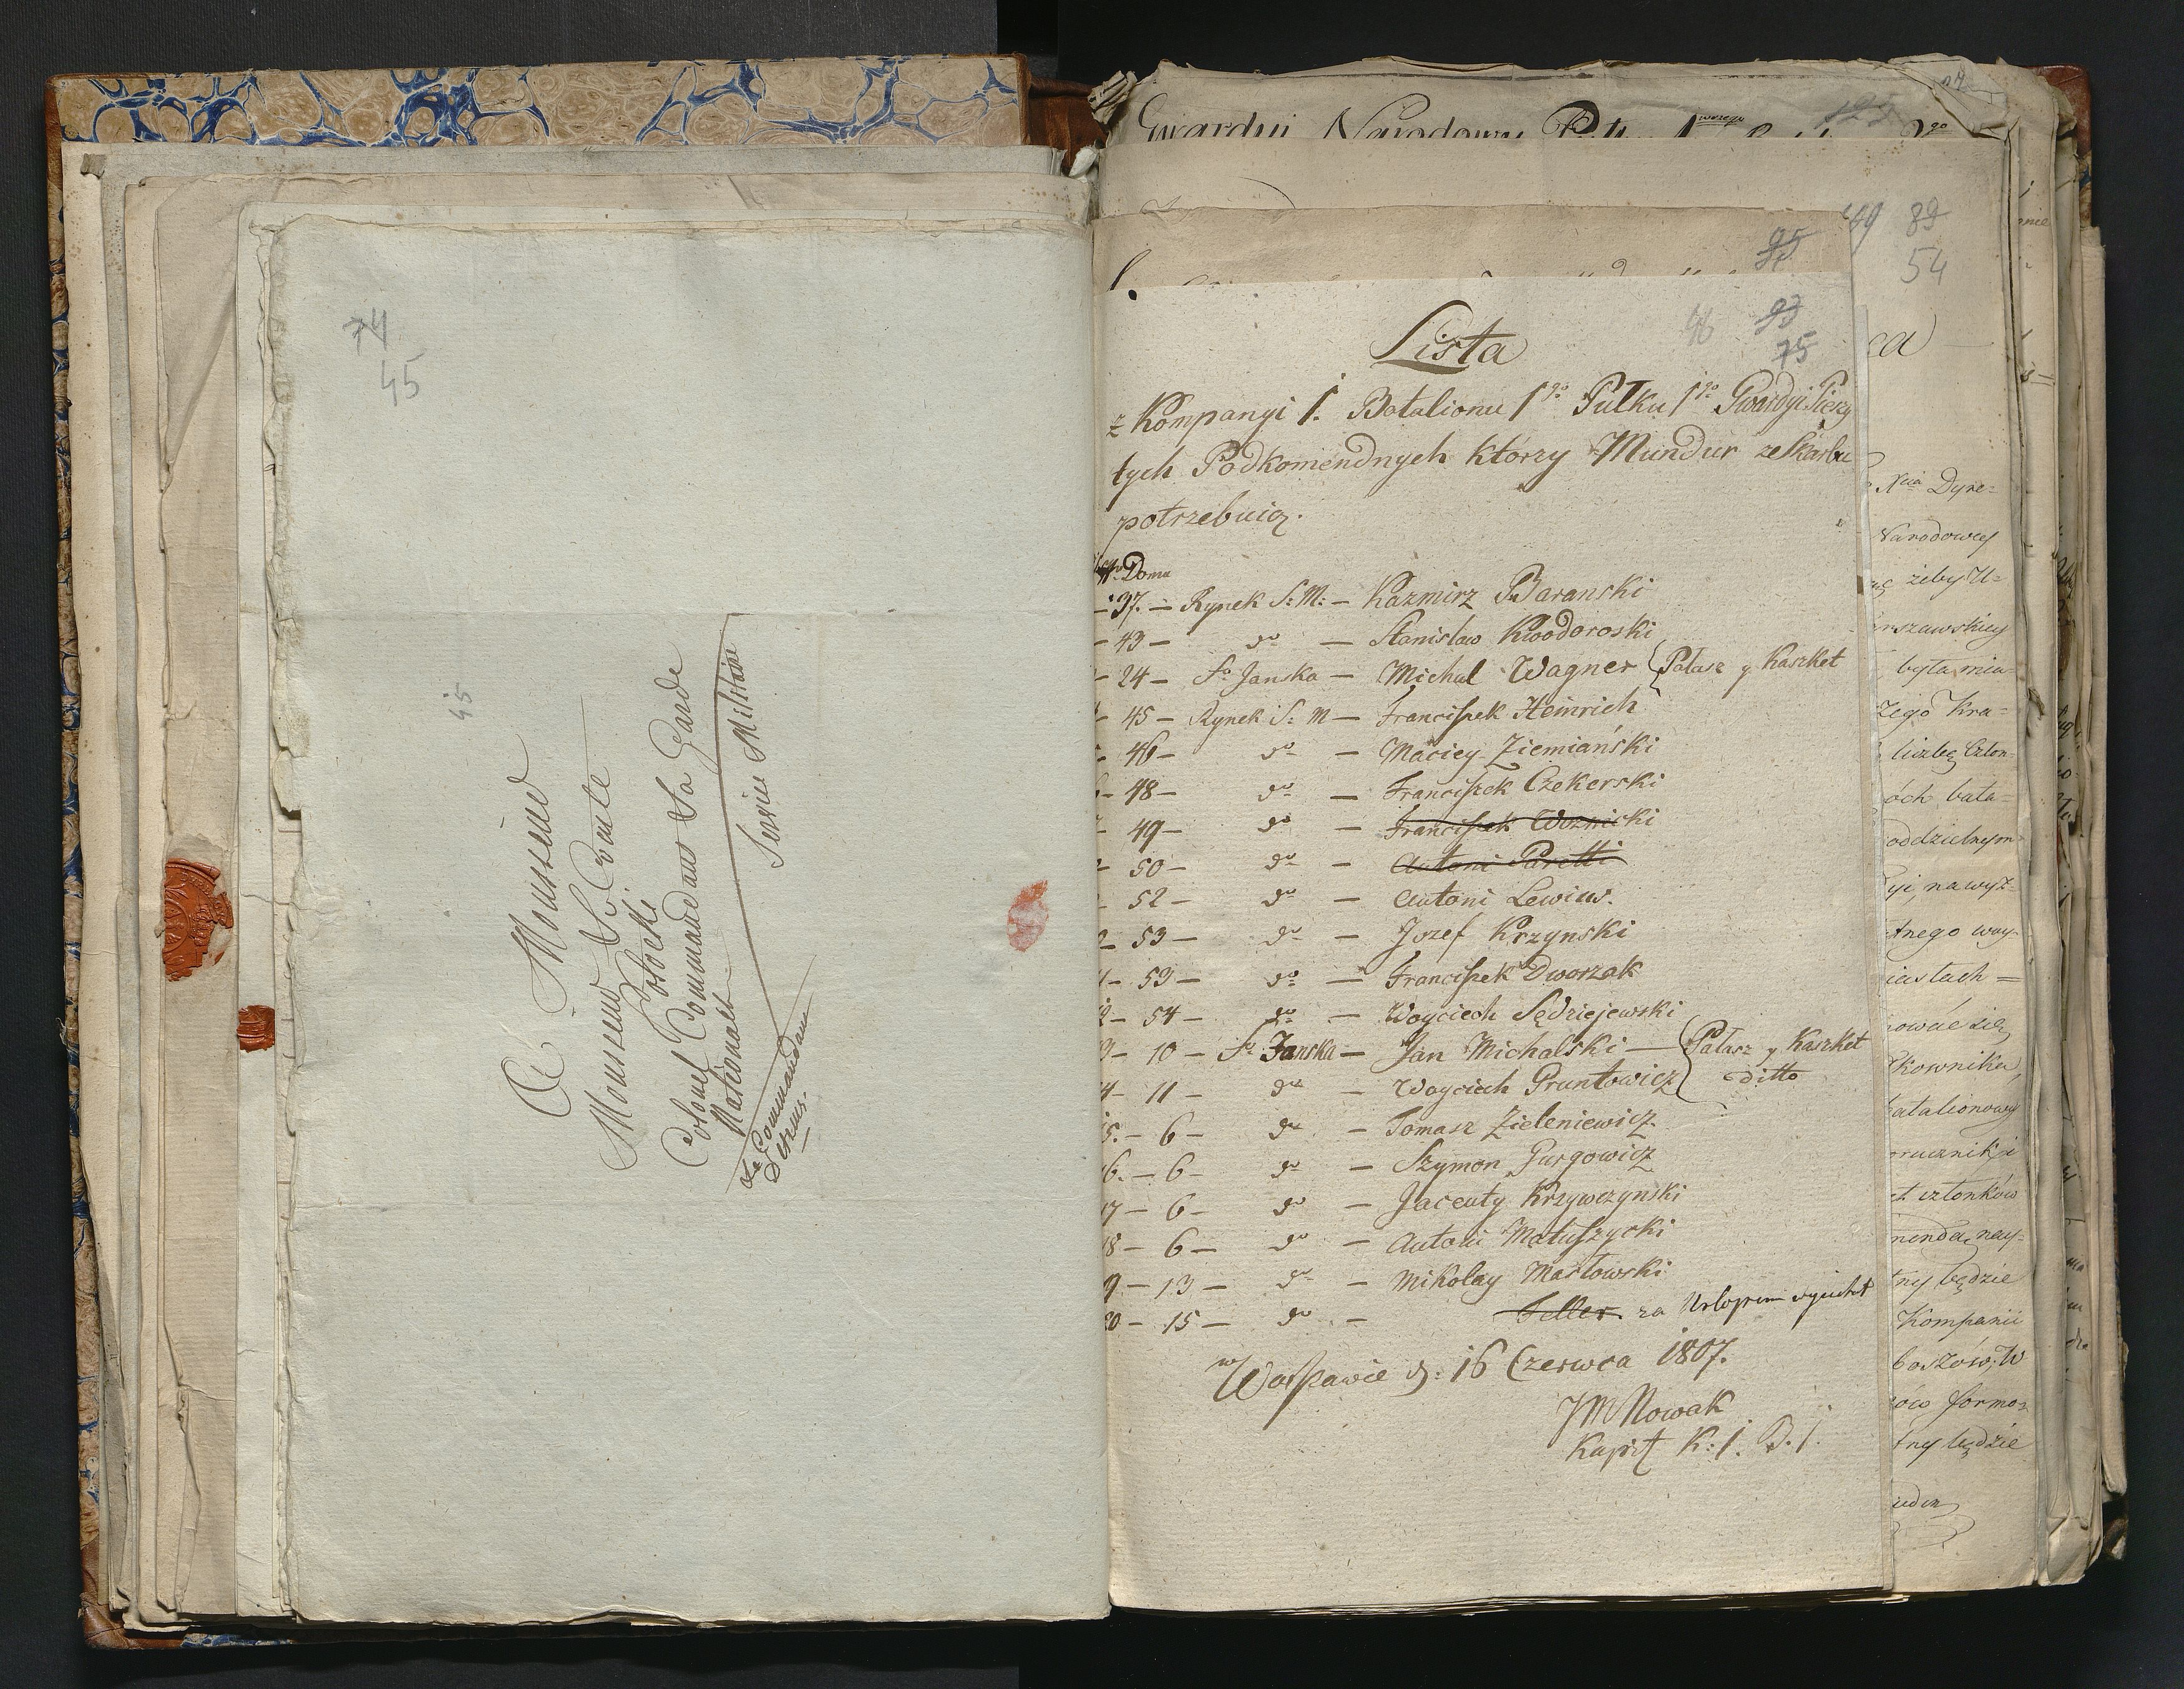 74
45
45
A Monsieur
Monsieur le Comte
Potocki
Colonel Commandant la Garde
Nationale
Service Militaire
Le Commandant
Gwardyi Narodowey
125
49 89
54
95
46 93
75
Lista
z Kompanyi 1. Batalionu 1go Pułku 1go Gwardyi Pieszy
tych Podkomendnych ktorzy Mundur ze Skarbu
potrzebuią.
Nro Domu
- 37. - Rynek S: M: - Kazmirz Baranski
- 43 - do - Stanislaw Kwodoroski
- 24 - So Janska - Michal Wagner { Pałasz y Kaszket
- 45 - Rynek S: M - Franciszek Heinrich
- 46 - do - Maciey Ziemiański
- 48 - do - Franciszek Czekerski
- 49 - do - Franciszek Woznicki
- 50 - do - Antoni Paretti
- 52 - do - Antoni Lewiw.
- 53 - do - Jozef Krzynski
- 53 - do - Franciszek Dworzak
12 - 54 - do - Woyciech Sędziejewski
- 10 - So Janska - Jan Michalski - { Pałasz y Kaszket
- 11 - do - Woyciech Gruntowicz ditto
15. - 6 - do - Tomasz Zieleniewicz.
16. - 6 - do - Szymon Gurgowicz
17 - 6 - do - Jacenty Krzywczynski
18 - 6 - do - Antoni Matuszycki
19 - 13 - do - Mikolay Masłowski
20 - 15 - do - Feller za Urlopem
w Warszawie d: 16 Czerwca 1807.
JM Nowak
Kapit K: 1. B. 1.
ca
Xcia Dyre=
Narodowey
żeby U=
rszawskiey
była mia=
zego Kra=
liczbę Człon=
óch bata=
oddzielnym
yi, na wyż=
tnego woy=
iastach =
ować się
kownika,
atalionowy
orucznik i
et członków
menda nay=
tny będzie
Kompanii
boszów, W
ów formo=
tny będzie